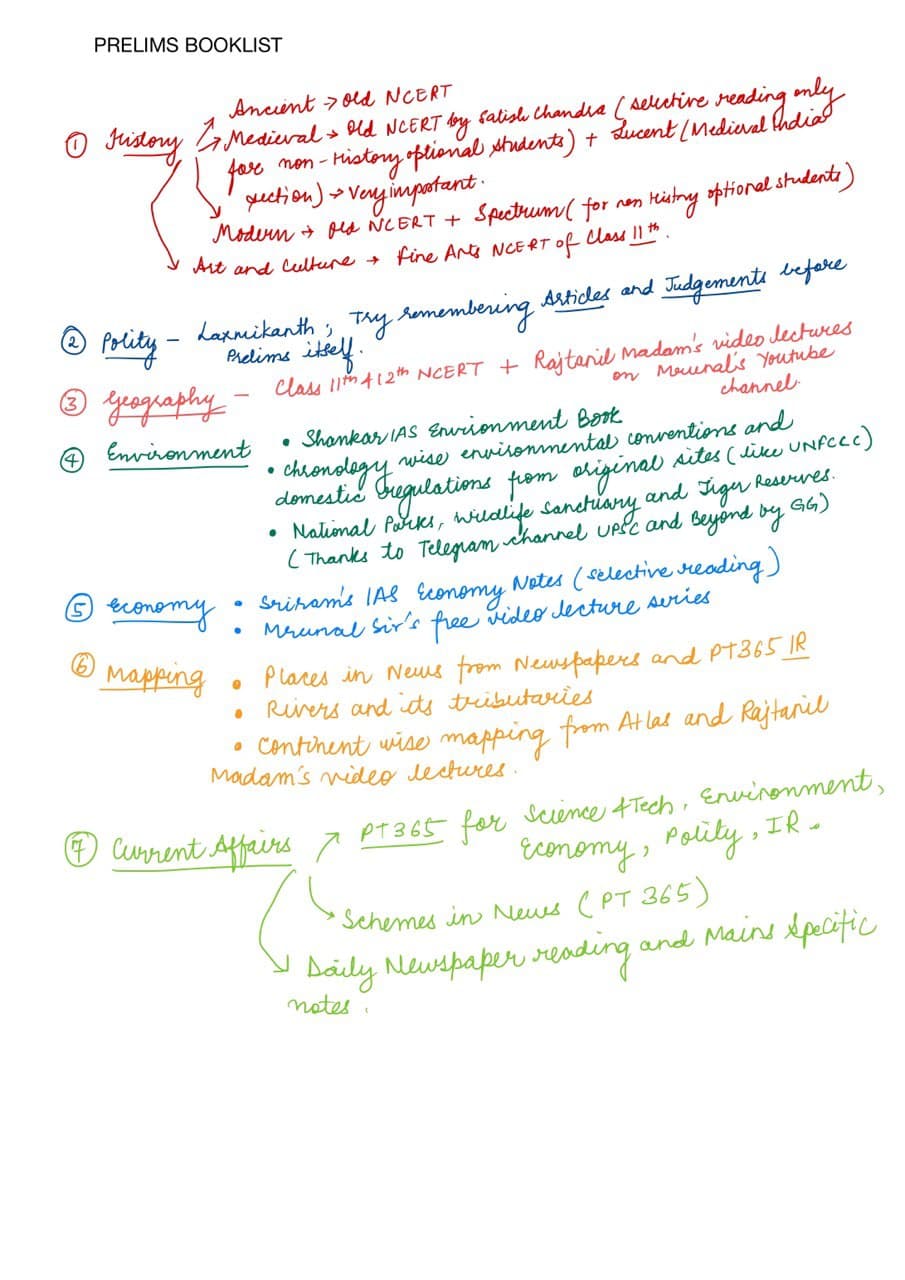 PRELIMS BOOKLIST
① History
Ancient → Old NCERT
→ Medieval → Old NCERT by Satish Chandra (selective reading only
for non-History optional students) + Lucent (Medieval India
section) → Very important.
Modern → Old NCERT + Spectrum (for non History optional students)
Art and Culture → Fine Arts NCERT of Class 11th.
② Polity – Laxmikanth ; Try remembering Articles and Judgements before
Prelims itself.
③ Geography – Class 11th & 12th NCERT + Rajtanil Madam's video lectures
on Mrunal's Youtube
channel.
④ Environment • Shankar IAS Environment Book
• chronology wise environmental conventions and
domestic regulations from original sites (like UNFCCC)
• National Parks, Wildlife Sanctuary and Tiger Reserves.
(Thanks to Telegram channel UPSC and Beyond by GG)
⑤ Economy • Sriram's IAS Economy Notes (selective reading)
• Mrunal Sir's free video lecture series
⑥ Mapping • Places in News from Newspapers and PT365 IR
• Rivers and its tributaries
• Continent wise mapping from Atlas and Rajtanil
Madam's video lectures.
⑦ Current Affairs PT365 for Science & Tech, Environment,
Economy, Polity, IR.
Schemes in News (PT 365)
Daily Newspaper reading and Mains Specific
notes.